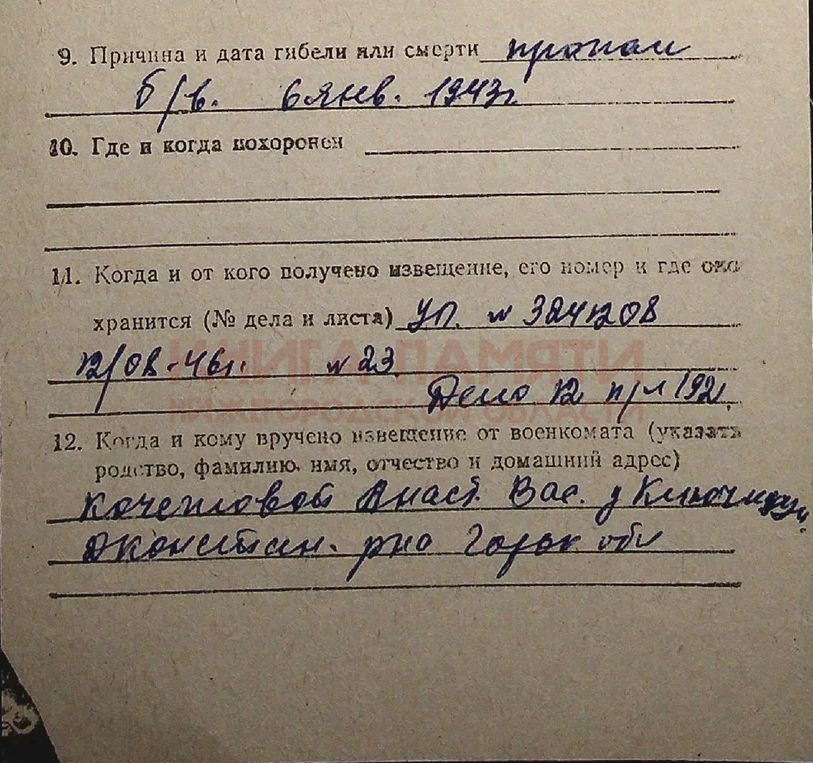 9. Причина и дата гибели или смерти пропал
б/в. 6 янв. 1943г
10. Где и когда похоронен
11. Когда и от кого получено извещение, его номер и где оно
хранится (№ дела и листа) УП. №
12/08-46г. №23
КНИГА ПАМЯТИ
Дело 12
НИЖЕГОРОДСКОЙ ОБЛАСТИ
12. Когда и кому вручено извещение от военкомата (указать
родство, фамилию, имя, отчество и домашний адрес)
Анаст. Вас. д
Д константин. рно Горьк обл